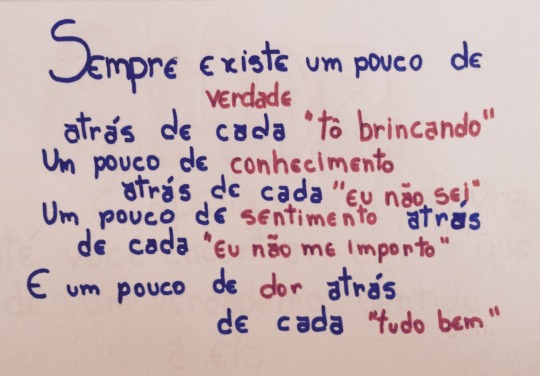 Sempre existe um pouco de
verdade
atrás de cada "tô brincando"
Um pouco de conhecimento
atrás de cada "eu não sei"
Um pouco de sentimento atrás
de cada "eu não me importo"
E um pouco de dor atrás
de cada "tudo bem"